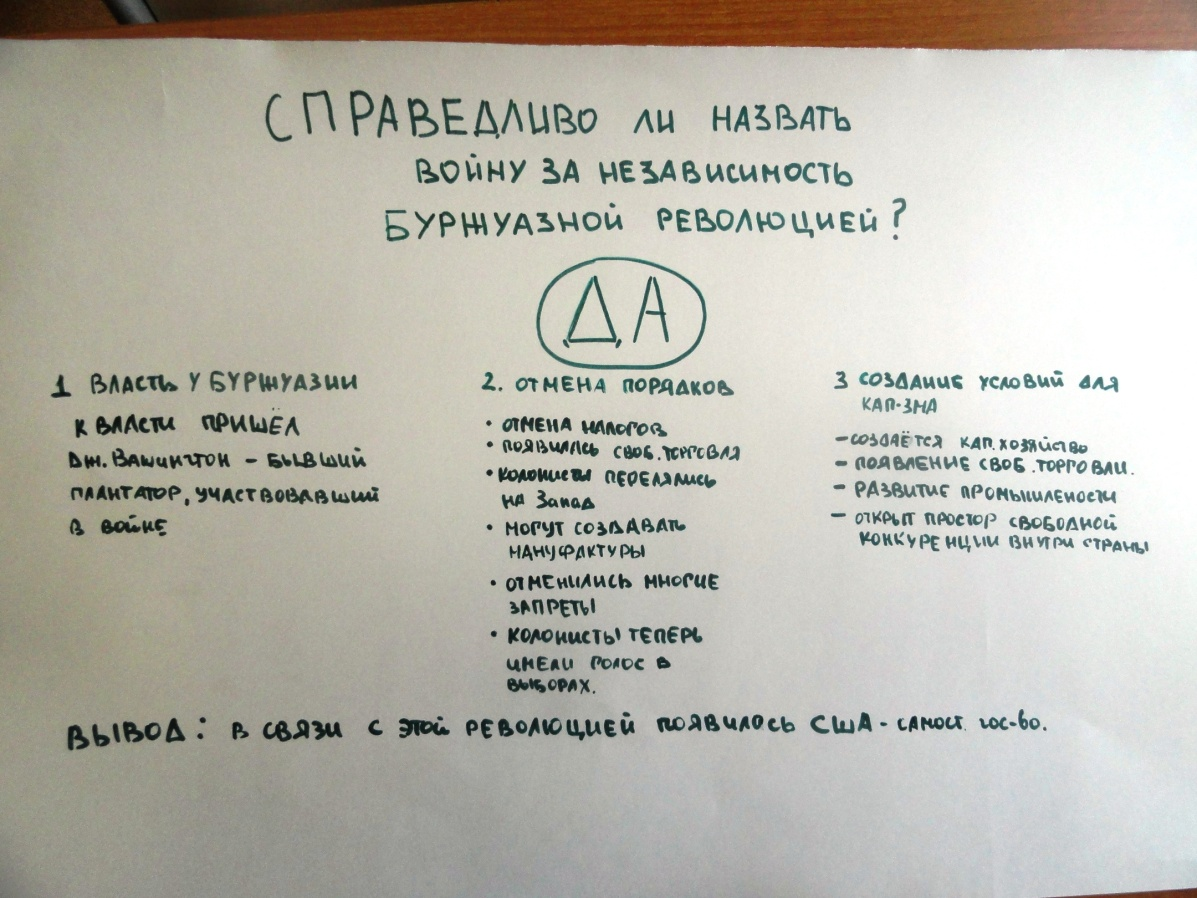 СПРАВЕДЛИВО ЛИ НАЗВАТЬ
ВОЙНУ ЗА НЕЗАВИСИМОСТЬ
БУРЖУАЗНОЙ РЕВОЛЮЦИЕЙ?
ДА
1 ВЛАСТЬ У БУРЖУАЗИИ
К ВЛАСТИ ПРИШЁЛ
ДЖ. ВАШИНГТОН – БЫВШИЙ
ПЛАНТАТОР, УЧАСТВОВАВШИЙ
В ВОЙНЕ
2. ОТМЕНА ПОРЯДКОВ
• ОТМЕНА НАЛОГОВ
• ПОЯВИЛАСЬ СВОБ. ТОРГОВЛЯ
• КОЛОНИСТЫ ПЕРЕЛЯЛИСЬ
НА ЗАПАД
• МОГУТ СОЗДАВАТЬ
МАНУФАКТУРЫ
• ОТМЕНИЛИСЬ МНОГИЕ
ЗАПРЕТЫ
• КОЛОНИСТЫ ТЕПЕРЬ
ИМЕЛИ ГОЛОС В
ВЫБОРАХ.
3 СОЗДАНИЕ УСЛОВИЙ ДЛЯ
КАП-ЗМА
– СОЗДАЁТСЯ КАП. ХОЗЯЙСТВО
– ПОЯВЛЕНИЕ СВОБ. ТОРГОВЛИ.
– РАЗВИТИЕ ПРОМЫШЛЕНОСТИ
– ОТКРЫТ ПРОСТОР СВОБОДНОЙ
КОНКУРЕНЦИИ ВНУТРИ СТРАНЫ
ВЫВОД: В СВЯЗИ С ЭТОЙ РЕВОЛЮЦИЕЙ ПОЯВИЛОСЬ США - САМОСТ. ГОС-ВО.